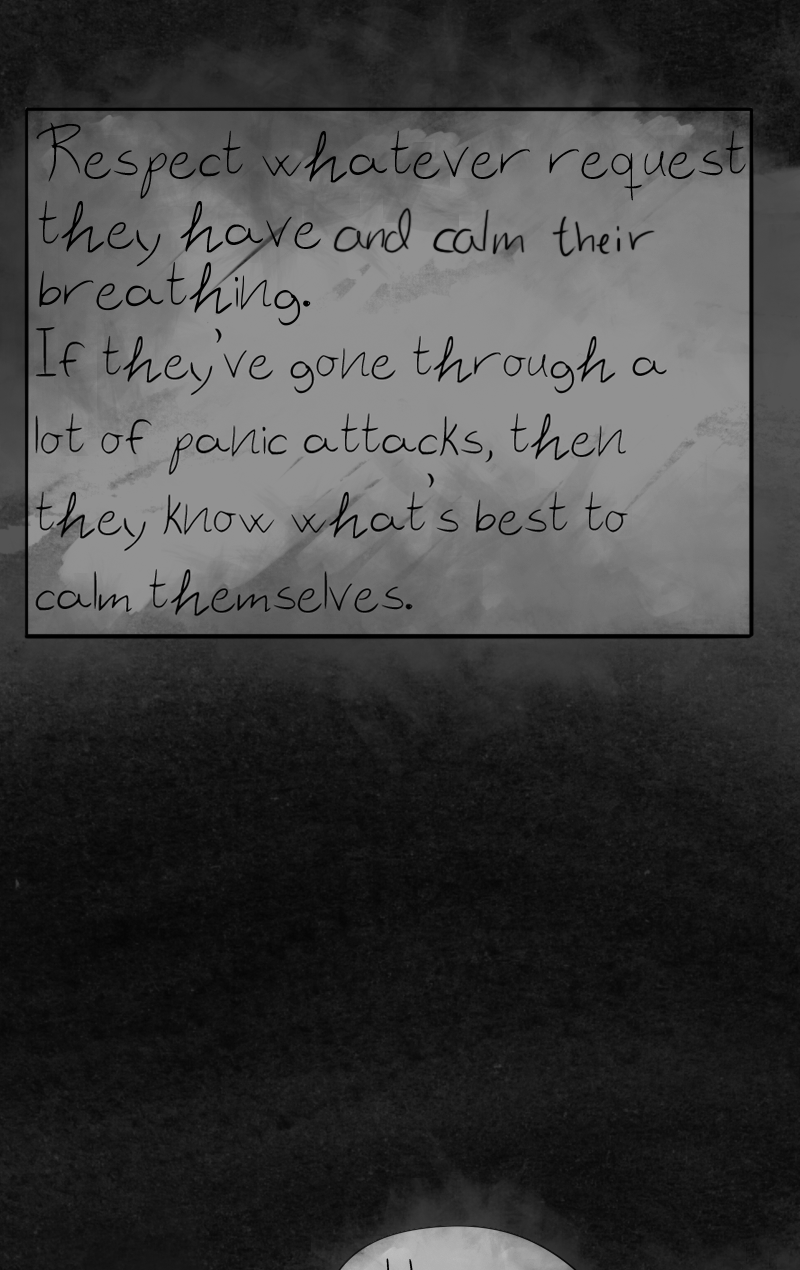 Respect whatever request
they have and calm their
breathing.
If they've gone through a
lot of panic attacks, then
they know what's best to
calm themselves.